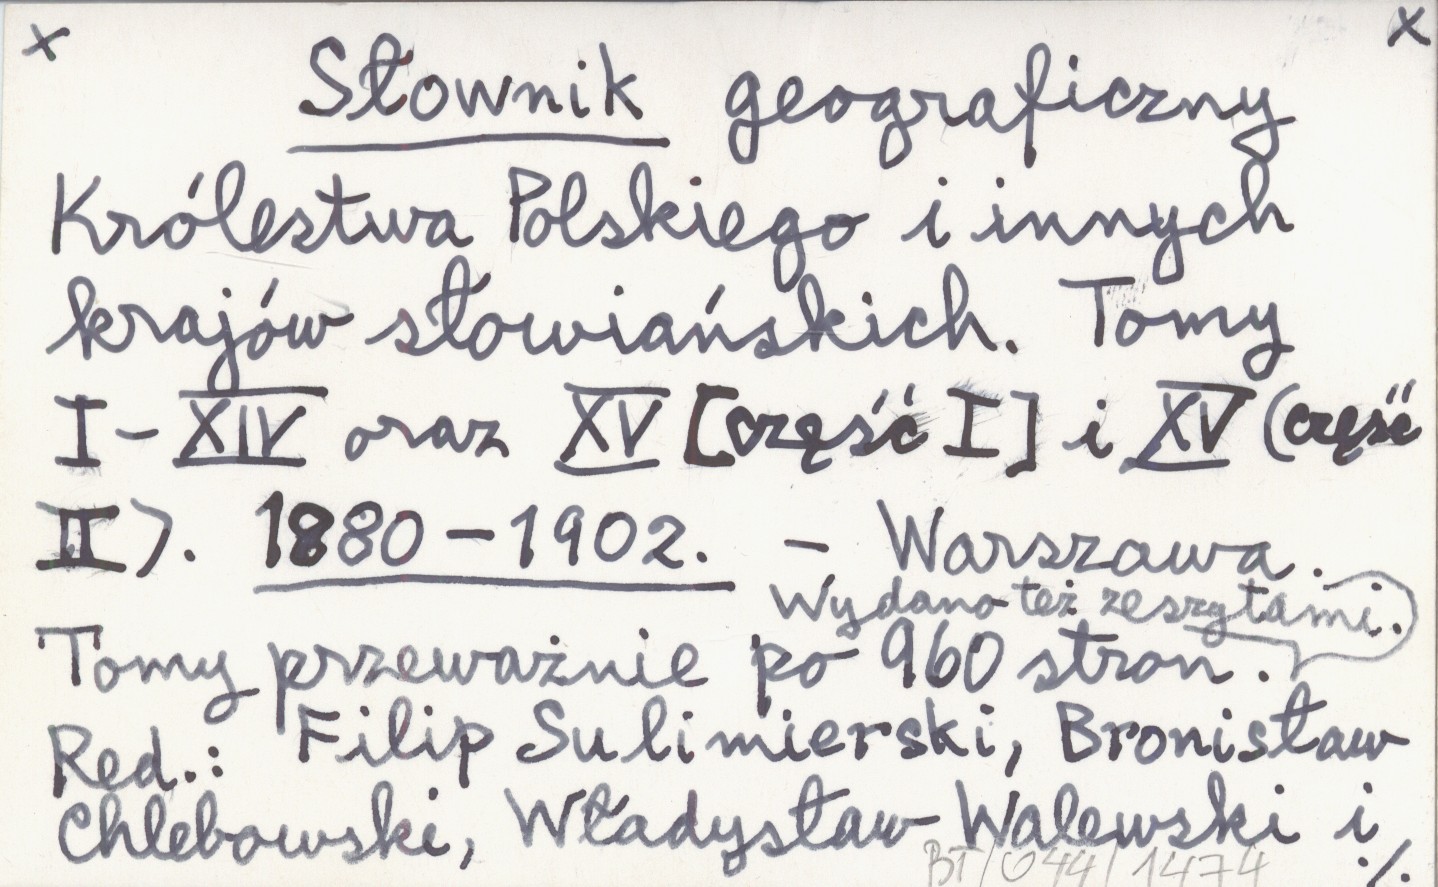 x x
Słownik geograficzny
Królestwa Polskiego i innych
krajów słowiańskich. Tomy
I-XIV oraz XV [część I] i XV (część
II). 1880-1902. - Warszawa.
Wydano też zeszytami.
Tomy przeważnie po 960 stron.
Red.: Filip Sulimierski, Bronisław
Chlebowski, Władysław Walewski i
BT/044/1474 ./.